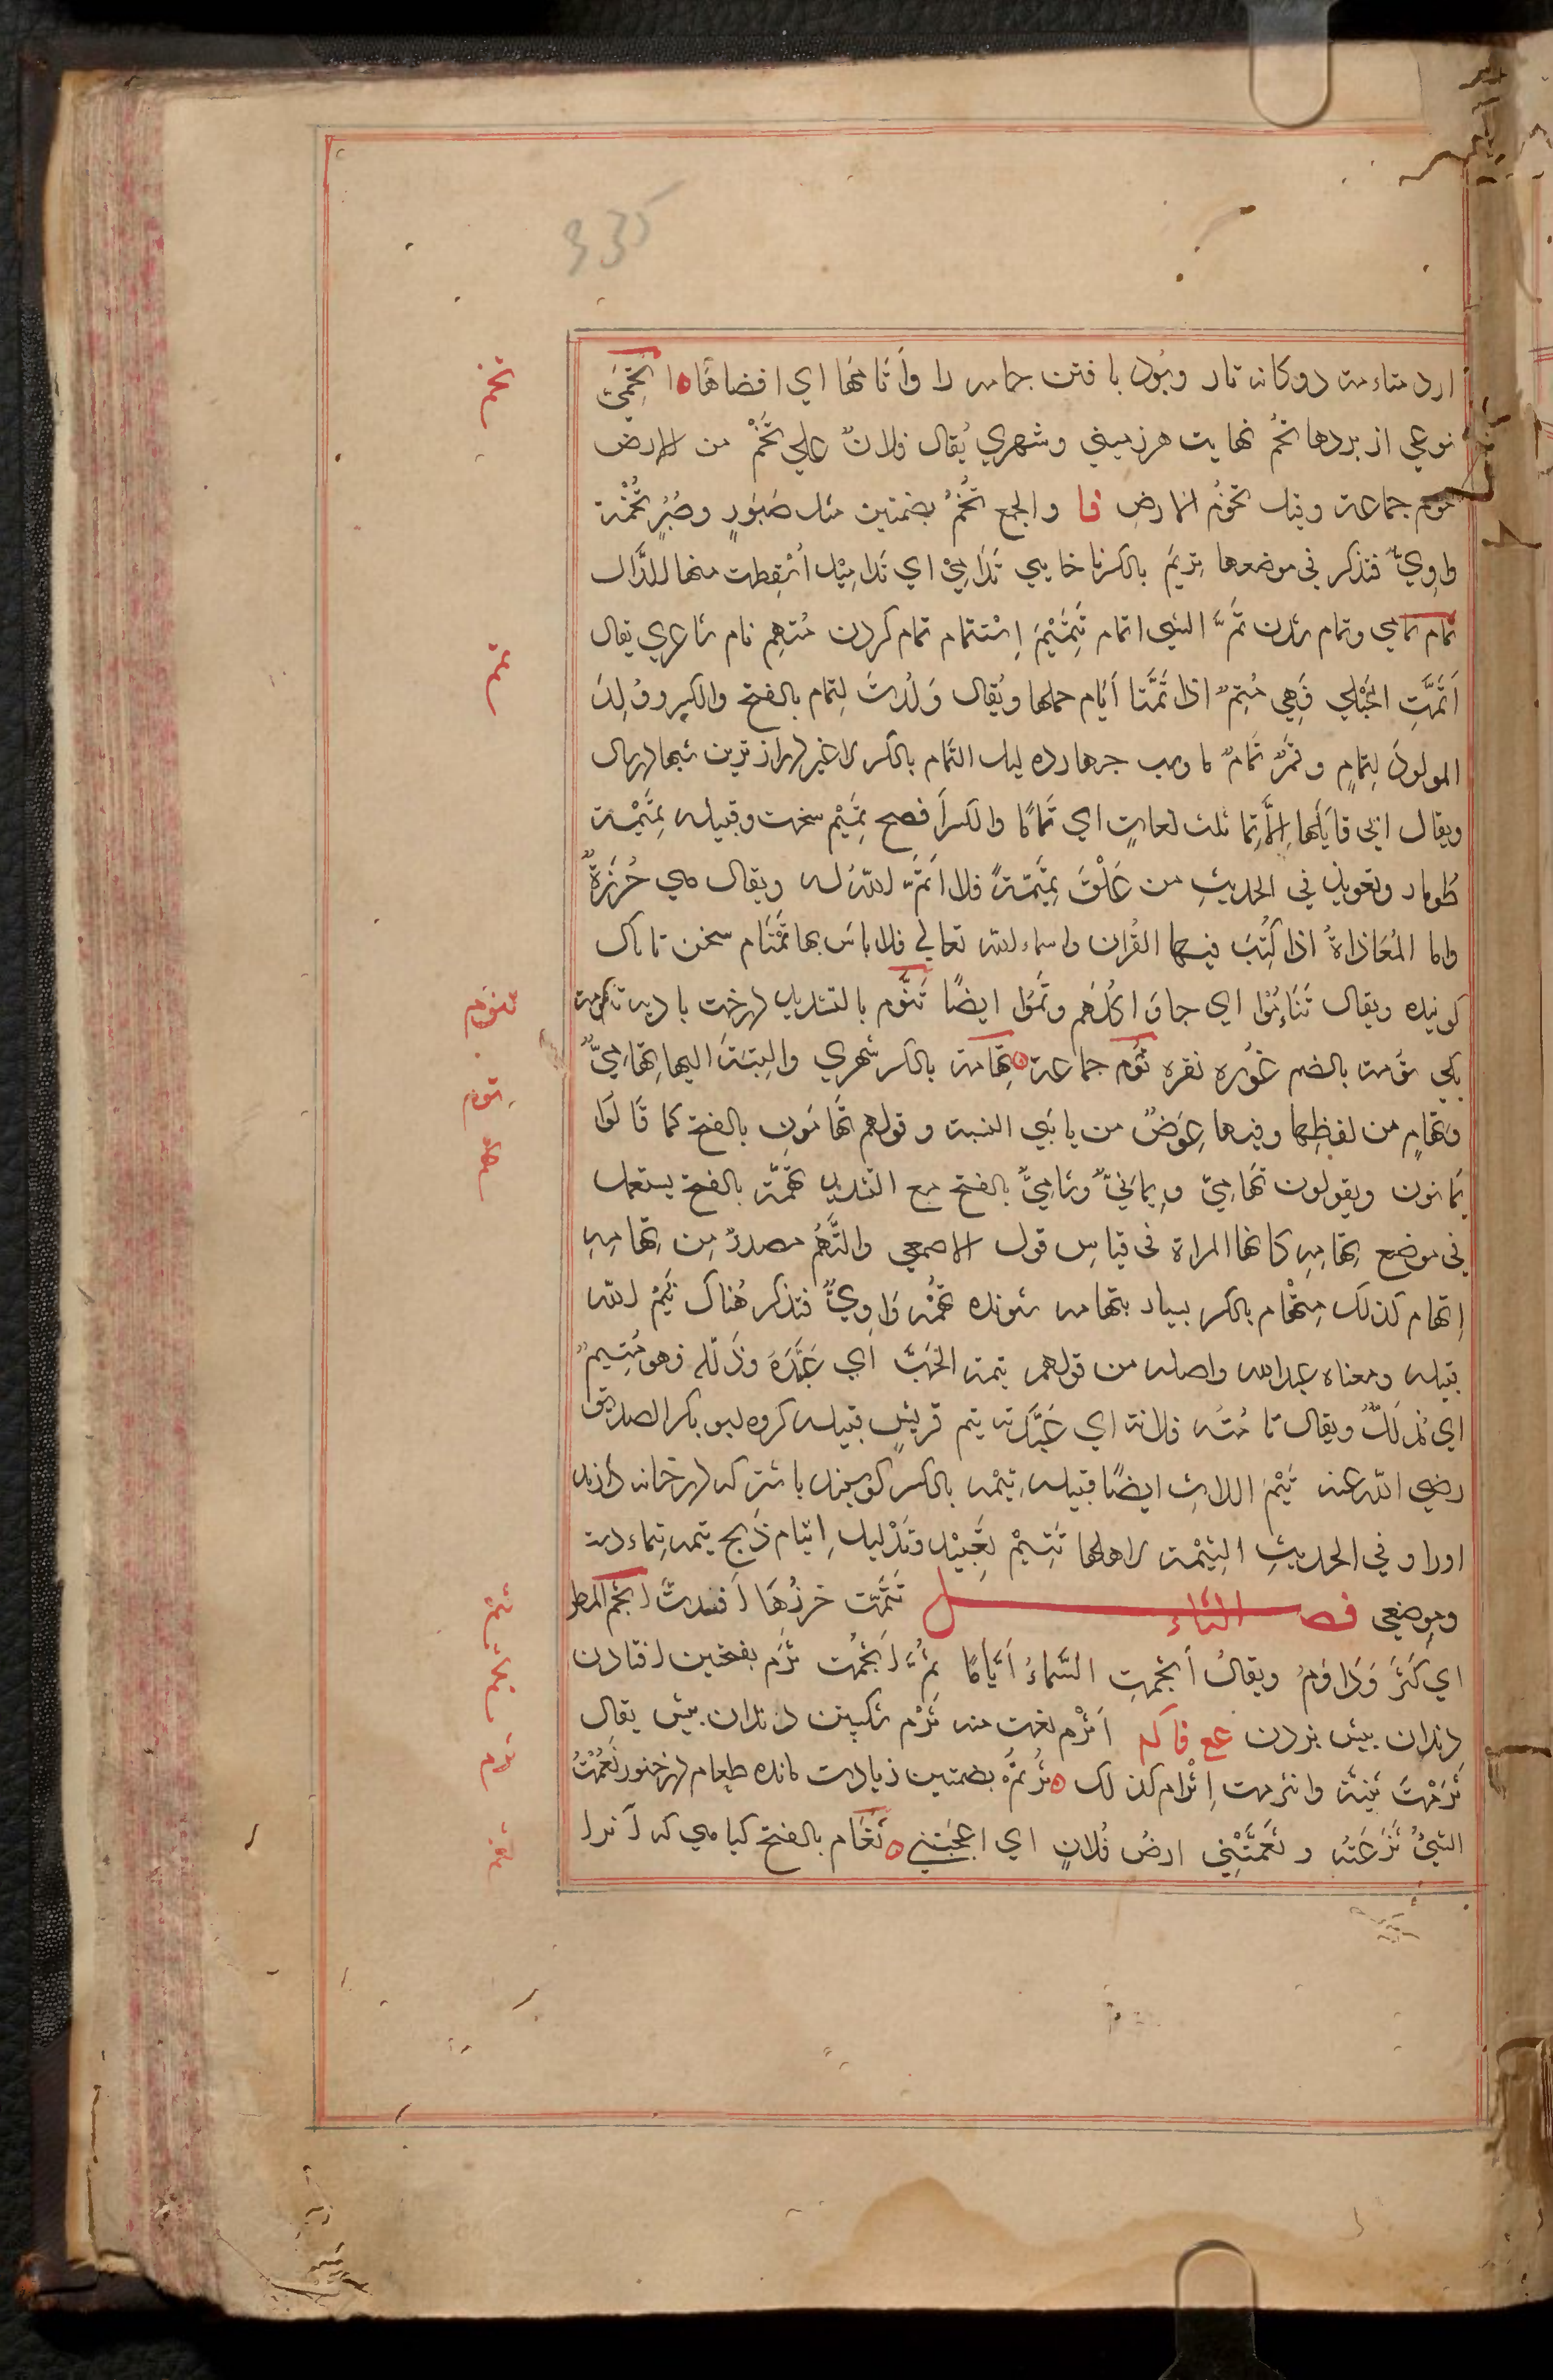 335
ارد متاءمة دوكانه تار وپُود بافتن جامه را وأتامُها اي افضاهَا اتحَمِيّ
نوعي از بردها تخمُ نهايت هرزميني وشهري يُقال فلانٌ علي تَخْمٌ من الارض
تخوم جماعة وقيل تخومُ الارضِ فا والجمع تُخُمٌ بضمتين مثل صَبُورٍ وصُبُرٍ تُخَمَة
واوِيٌّ فتذكر في موضعها تِريَمَ بالكرناخايي تَدَامِيْ اي تَدامِيْل أُسْقِطت منها للدَّال
تمام تمامي وتمام شدن تَمَّ الشي اتمام تَتِمْيْمُ اِسْتتمام تمام كردن مُتمِم نام شاعري يقال
اَتَمَّتِ الحُبْلي فَهِي مُتِمٌّ اذا تَمَّتا اَيّام حملها ويُقال وَلَدتْ لِتمام بالفتح والكسر ووُلِدَ
المولودُ لِتمامٍ وقمَرٌ تَمَامٌ ماه شب چهارده ليل التمام بالكسر لا غير درازترين شبها درسال
ويقال ابي قايلُها اِلّا تِمّا ثلث لغاتٍ اي تَمَامًا والكسر اَفصح تَمِيْم سخت وقبيله تَمِيْمَة
طُومار وتعويذ في الحديثِ من عَلَّقَ تمِيْمَةً فلا اَتمَّ اللهُ له ويقال هي خُرَزَةٌ
واما المُعَاذاةُ اذا كُتِبَ فيها القُران واسماء الله تعالي فلا باسَ بها تَمْتَام سخن تا تاك
كوينده ويقال تَتَامُّوْا اي جاوَا كُلُهم وتَمُّوا ايضًا تَنُّوم بالتشديد درخت باديه تنومة
يكي تؤمة بالضم غوره نقره تُوم جماعة تِهامة بالكسر شهري والنِسْبَة اليها تِهامِيٌّ
وتَهَامٍ من لفظِها وفيها عِوَضٌ من يايَي النسبة وقولهم تَهَامُونِ بالفتح كما قَالوَا
يَمانون ويقولون تَهَامِيّ ويمانيّ وشامِيٌّ بالفتح مع التشديد تَهَمَة بالفتح يستعمل
في موضع تِهامةِ كانها المراة في قياسِ قول الاصمعي والتَهَمُ مصدرٌ مِن تِهامةِ
اِتهام كذلك مِتْهام بالكسر بسيار بتهامه شونده تُهَمَة وَاوِيٌّ فتذكر هُناك تَيْمُ الله
قبيله ومعناه عبدالله واصله من قولهم تيمه الحُبُّ اَي عَبَّدَهَ وذَلّله فهو مُتيمٌ
اي مُذَلَّلٌ ويقال تامَتْه فلانة اي عَبَّدَته تيم قريشٍ قبيله كروه ابوبكر الصديق
رضي الله عنه تَيْمَ اللاتِ ايضًا قبيله تِيْمَه بالكسر كوسپند باشد كه درخانه دارند
اورا وفي الحديثِ التِيْمَة لاهلها تَتْيِيْمٌ تَعْبِيْد وتَذْليل اِتيام ذَبح تيمه تيماء دشت
وموضعي فصل الثاء تَثَمَّتت خرزُها اَفسدتْ اثجم المطر
اي كَثَرَ وَدَاوَمُ ويقالُ اَثجمتِ السَّماءُ اَيَّامًا ثمَّ اَثجمُت ثَرَم بفتحتين افتادن
دندان پيش بزدن عع فاكم اَثْرَم نعت منه ثَرْم شكستن دندان پيش يقال
ثَرَمْتُ ثَنِيَّة وانثرمت اِثْرام كذلك ثُرْتُمٌ بضمتين زيادت مانده طعام درخنور ثَعَمْتُ
الشيُ نَزَعْتُه وتَثَعَمَّتْنِي ارضُ فُلانٍ اي اعجَبَتْني ثَغَام بالفتح كياهي كه آنرا
تخم
تم
تنوم
توم
تهم
ثرم
ثغم